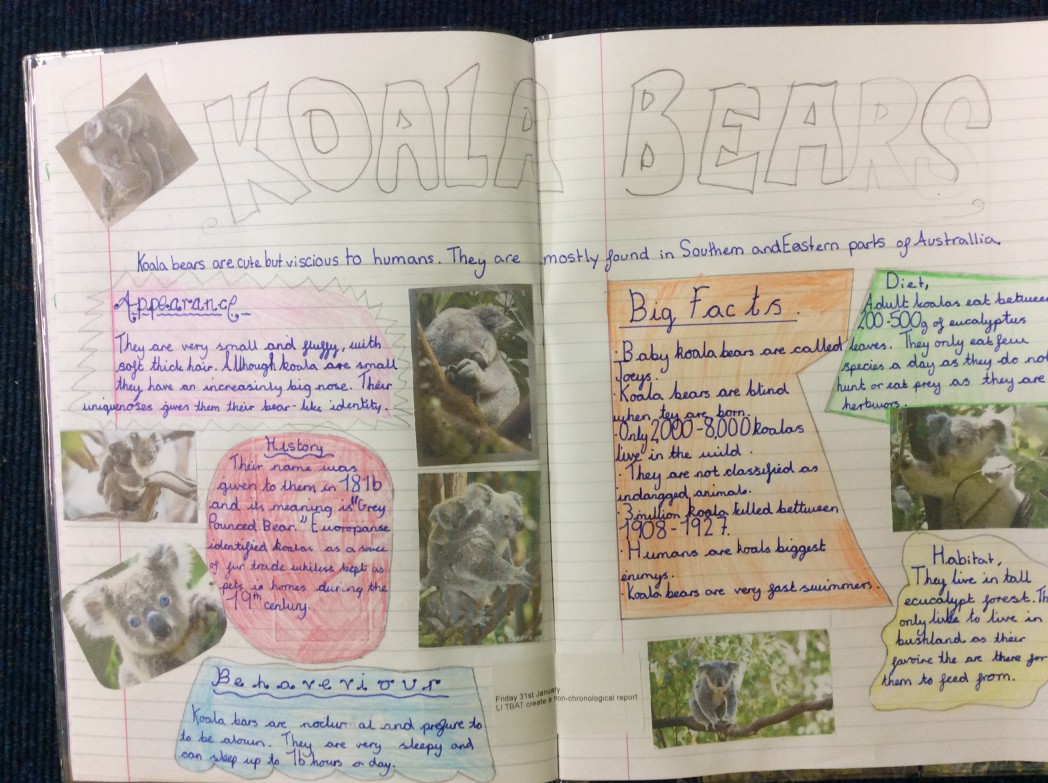 KOALA BEARS
Koala bears are cute but viscious to humans. They are mostly found in Southern and Eastern parts of Australlia.
Appearance
They are very small and fluffy, with
soft thick hair. Although koala are small
they have an increasinly big nose. Their
uniquenoses gives them their bear-like identity.
History
Their name was
given to them in 1816
and its meaning is "Grey
Pounced Bear." Euoropanse
identified koalas as a souce
of fur trade whilest kept as
pets in homes during the
19th century.
Behaveviour
Koala bars are nocturnal and prefure to
to be alown. They are very sleepy and
can sleep up to 16 hours a day.
Friday 31st January
LI TBAT create a non-chronological report
Big Facts.
· Baby koala bears are called
Joeys.
· Koala bears are blind
when tey are born.
· Only 2000-8,000 koalas
live in the wild.
· They are not classified as
indangged animals.
· 3 million koala killed bettween
1908-1927.
· Humans are koals biggest
enimys.
· Koala bears are very fast swimmers.
Diet,
Adult koalas eat between
200-500g of eucalyptus
leaves. They only eat few
species a day as they do not
hunt or eat prey as they are
herbivors.
Habitat,
They live in tall
ecucalypt forest. Th
only like to live in
bushland as their
favoire the are there for
them to feed from.